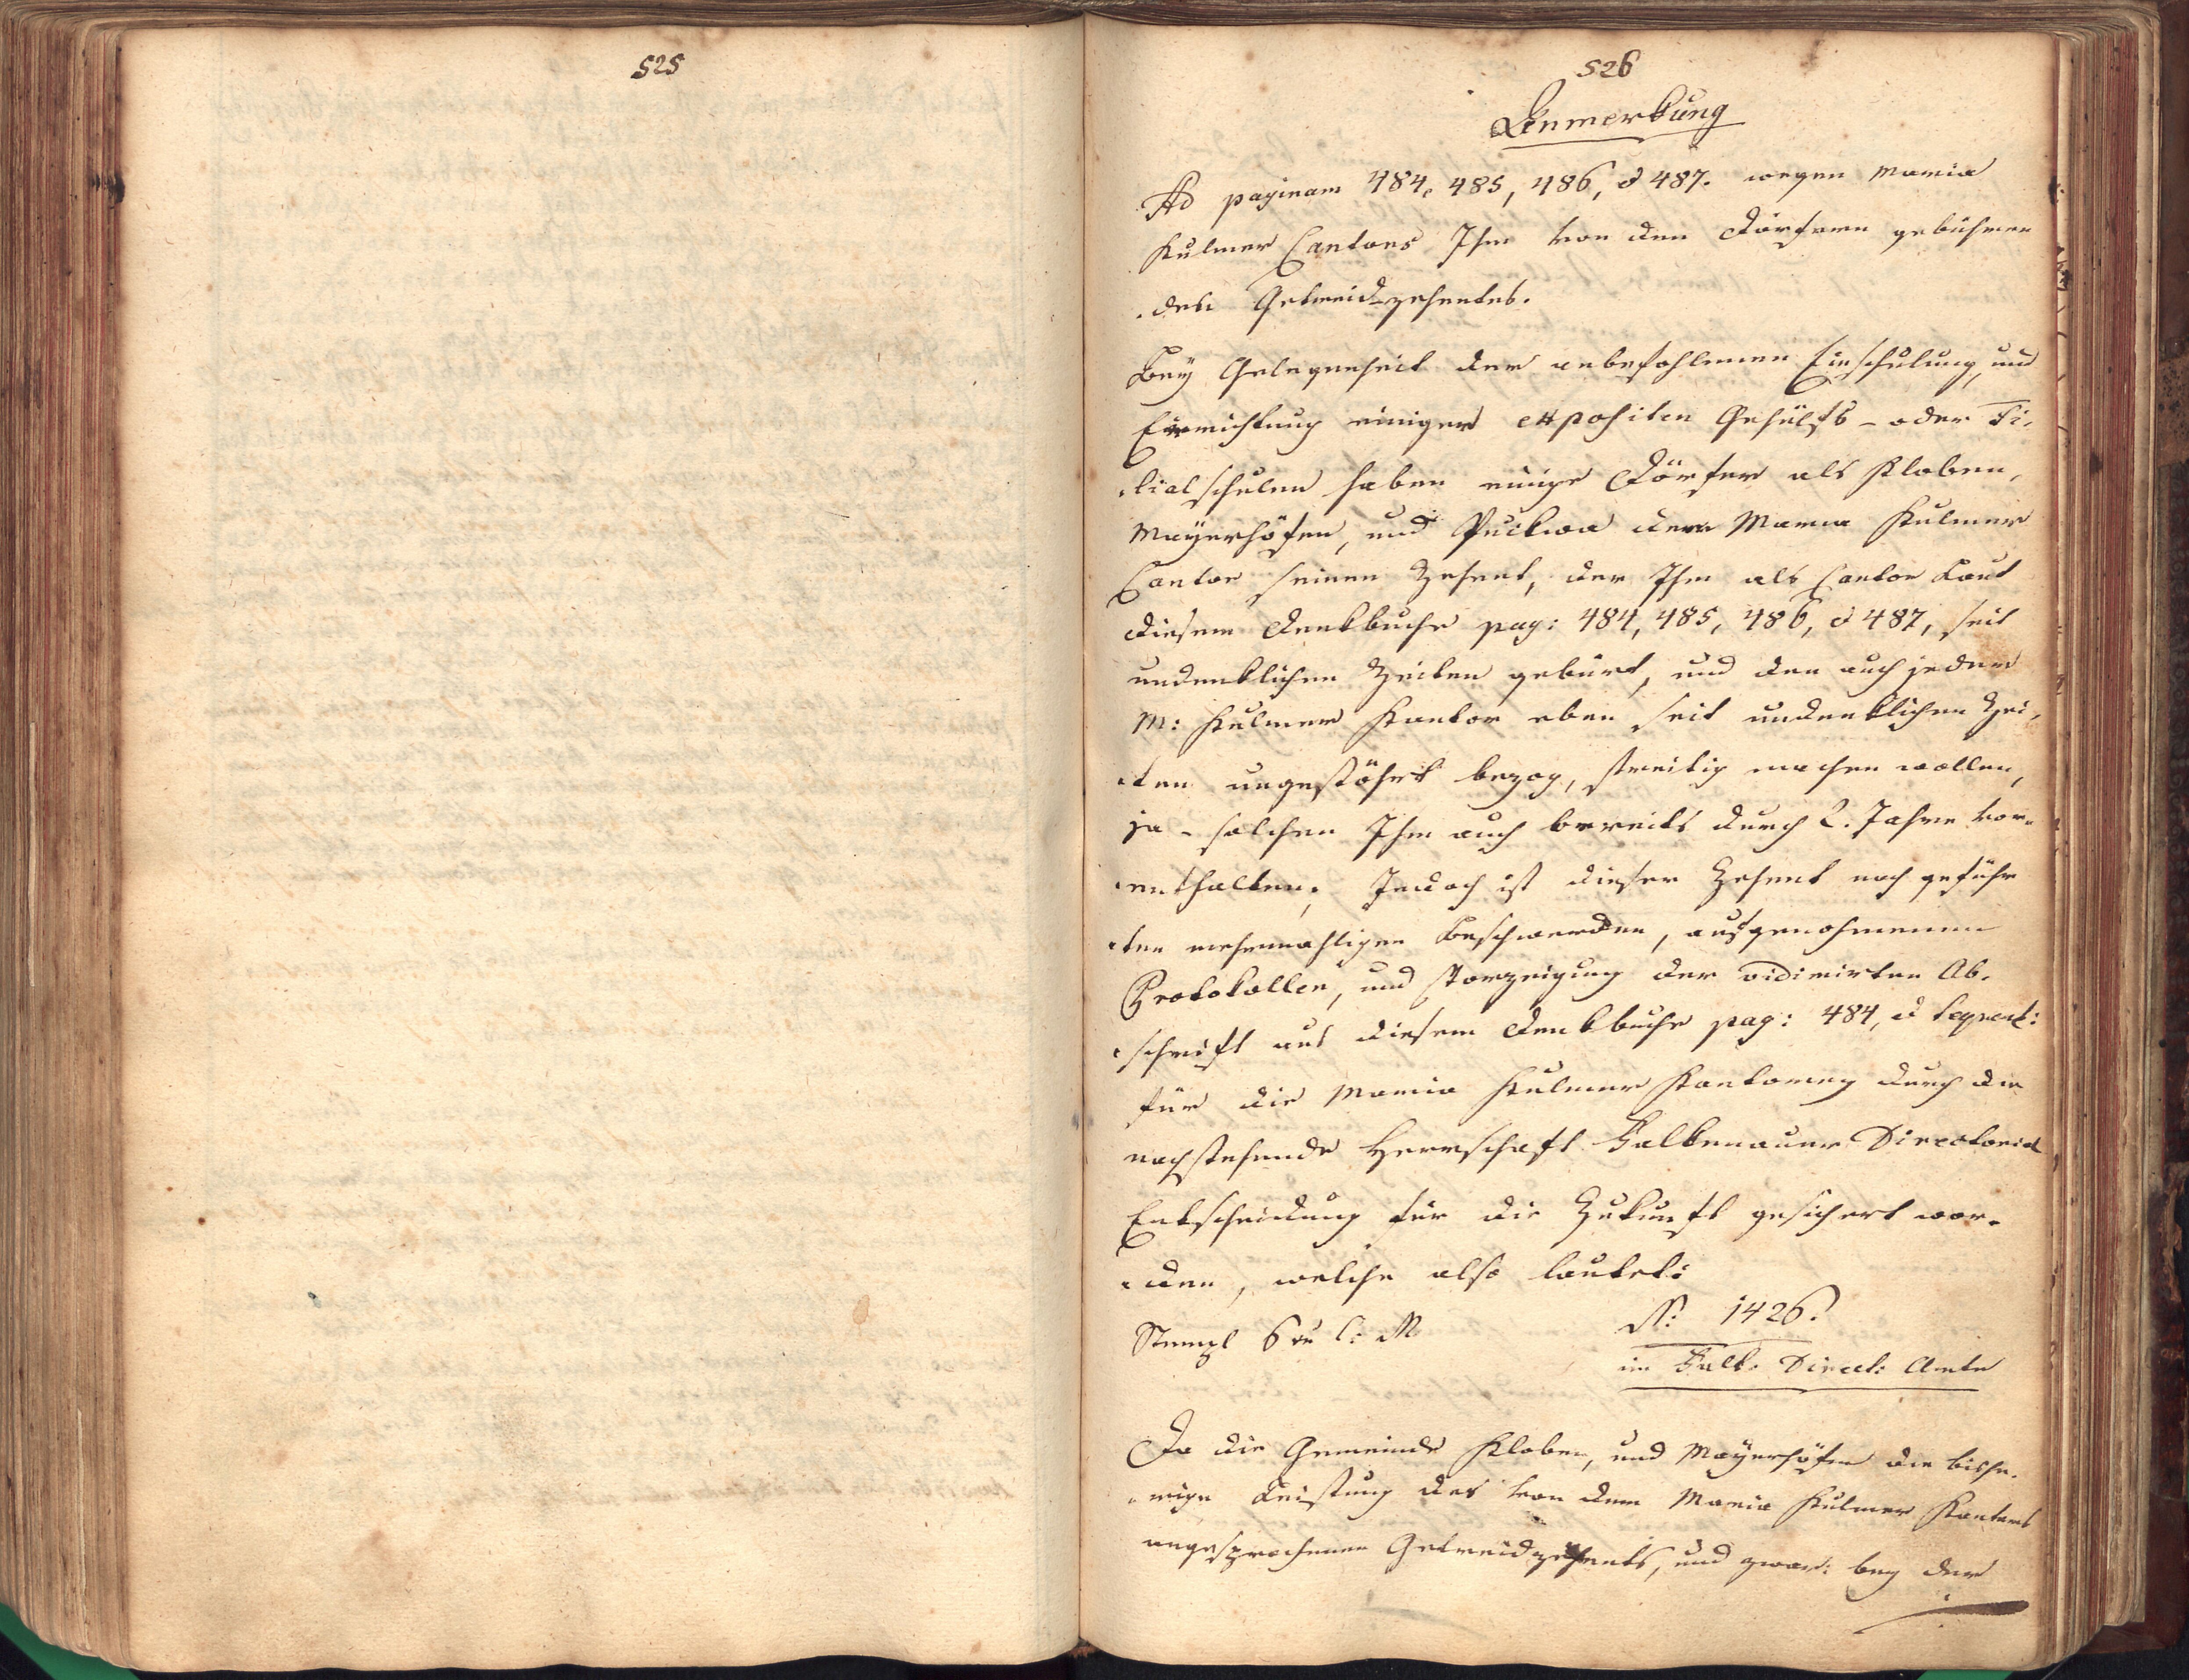 525
526
Anmerkung
Ad paginam 484, 485, 486, & 487. wegen Maria
Kulmer Cantors Ihm von den Dörfern gebühren
den Getreidzehentes.
Bey Gelegenheit der anbefohlenen Einschulung, und
Einrichtung einiger expositen Gehülfs- oder Fi-
lialschulen haben einige Dörfer als Kloben,
Mayerhöfen, und Puckwa dem Maria Kulmer
Cantor seinen Zehent, der Ihm als Cantor Laut
diesem Denkbuche pag: 484, 485, 486, & 487, seit
undenklichen Zeiten gebürt, und den auch jeder
M: Kulmer Kantor eben seit undenklichen Zei-
ten ungestöhrt bezog, streitig machen wollen,
ja - solchen Ihm auch bereits durch 2. Jahre vor-
enthalten; Jedoch ist dieser Zehent nach geführ
ten mehrmahligen Beschwerden, aufgenohmenen
Protokollen, und Vorzeigung der vidimirten Ab-
schrift aus diesem Denkbuche pag: 484, &
für die Maria Kulmer Kantorey durch die
nachstehende Herrschaft Falkenauer Directorial
Entscheidung für die Zukunft gesichert wor-
den, welche also lautet:
Stempl 6 C: M N: 1426.
im Falk. Direct: Amte
Da die Gemeinde Kloben, und Mayerhöfen die bishe-
rige Leistung des von dem Maria Kulmer Kantors
angesprochenen Getreidzehents, und zwar: bey der